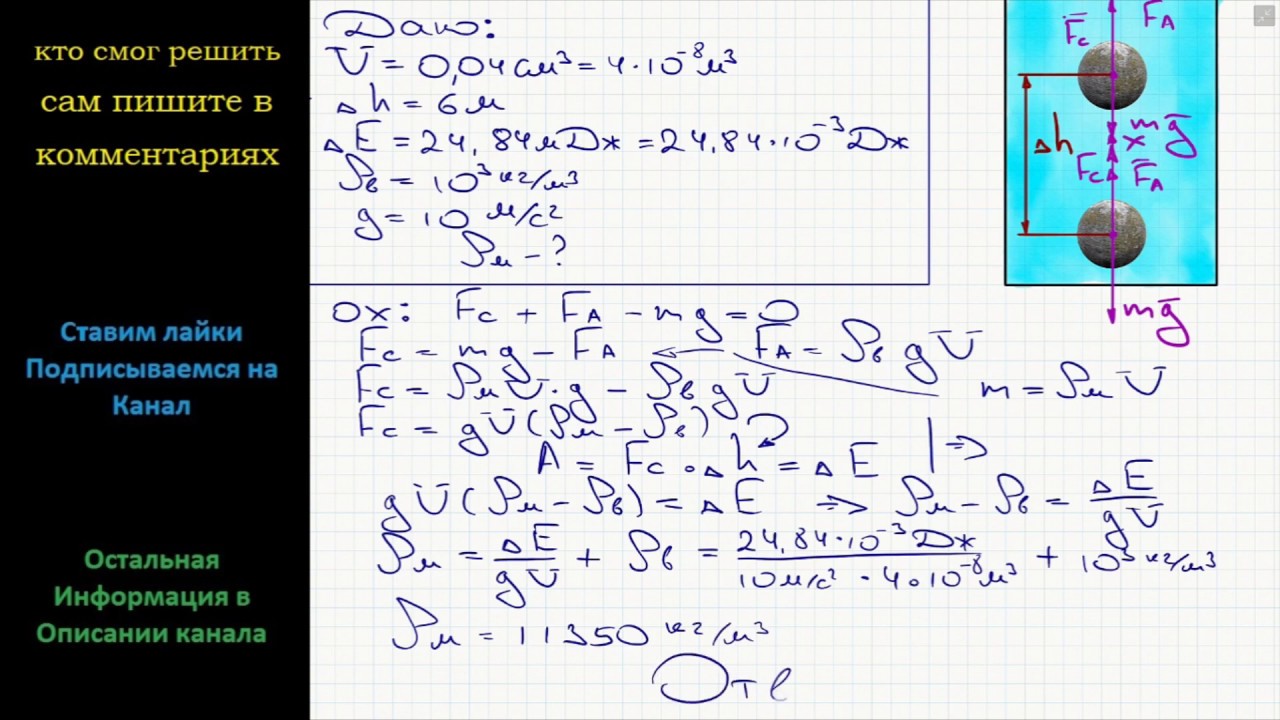 кто смог решить
сам пишите в
комментариях
Ставим лайки
Подписываемся на
Канал
Остальная
Информация в
Описании канала
Дано:
V = 0,04 см³ = 4·10⁻⁸ м³
Δh = 6 м
ΔE = 24,84 мДж = 24,84·10⁻³ Дж
ρв = 10³ кг/м³
g = 10 м/с²
ρм - ?
Fc FA
mg
x
Δh
Fc FA
mg
OX: Fc + FA - mg = 0
Fc = mg - FA FA = ρв g V
Fc = ρм V·g - ρв g V m = ρм V
Fc = gV(ρм - ρв)
A = Fc·Δh = ΔE | ⇒
gV(ρм - ρв) = ΔE ⇒ ρм - ρв = ΔE/gV
ρм = ΔE/gV + ρв = 24,84·10⁻³ Дж/10 м/с² · 4·10⁻⁸ м³ + 10³ кг/м³
ρм = 11350 кг/м³
От